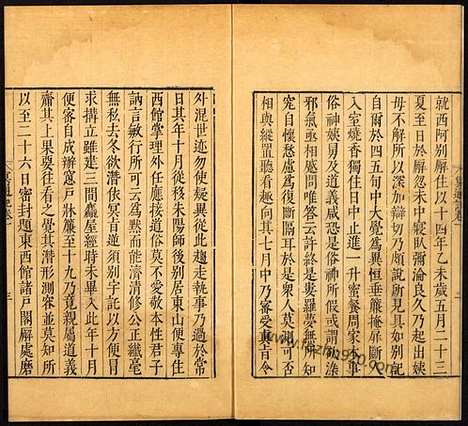 就西阿別解以十四年乙未歲五月二十三
夏至日於解忽未中寢臥彌淪良久乃起出姨
母不解所以深加辯切乃頗說所見具如別記
自爾於四五旬中大覺為異恒垂簾掩屏斷人
入室燒香獨住日中止進一升蜜餐周家本事
俗神姨舅及道義咸恐是俗神所假或謂染
邪氣亟相蚩問唯答云許終是婁羅夢無所
究自懷愁慮為復斷隔耳於是衆人莫測可
否相與縱置聽看趣向其七月中乃審受真旨令
外混世迹勿使疑異從此趨走執事乃過於常
日其年十月從移朱陽師後別居東山便專住
西館掌理外任應接道俗莫不愛敬本性君子
訥言敏行所可云為默而能濟清修公正纖毫
無私去冬欲潛依冥旨迺須別字託以方便冒
求搆立是三間麤屋經時未畢入此年十月
便密自成辦窻戶牀簾至十九乃竟親屬道義
齋其上果要待看之覺其潛形測容並莫知所
以至二十六日密封題東西館諸戶閣解處磨